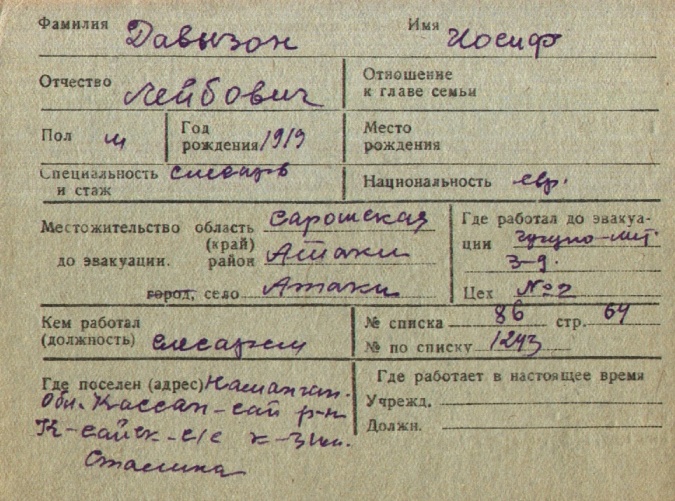 Фамилия Давызон Имя Иосиф
Отчество Лейбович Отношение к главе семьи
Пол м Год рождения 1919 Место рождения
Специальность и стаж слесарь Национальность евр.
Местожительство до эвакуации. область (край) Сарошская
район Атаки
город, село Атаки
Где работал до эвакуации чугуно-лит.
з-д.
Цех №2
Кем работал (должность) слесарем
№ списка 86 стр. 64
№ по списку 1243
Где поселен (адрес) Наманган.
Обл. Кассан-сай р-н
К-сайск-с/с к-з им.
Сталина
Где работает в настоящее время
Учрежд.
Должн.